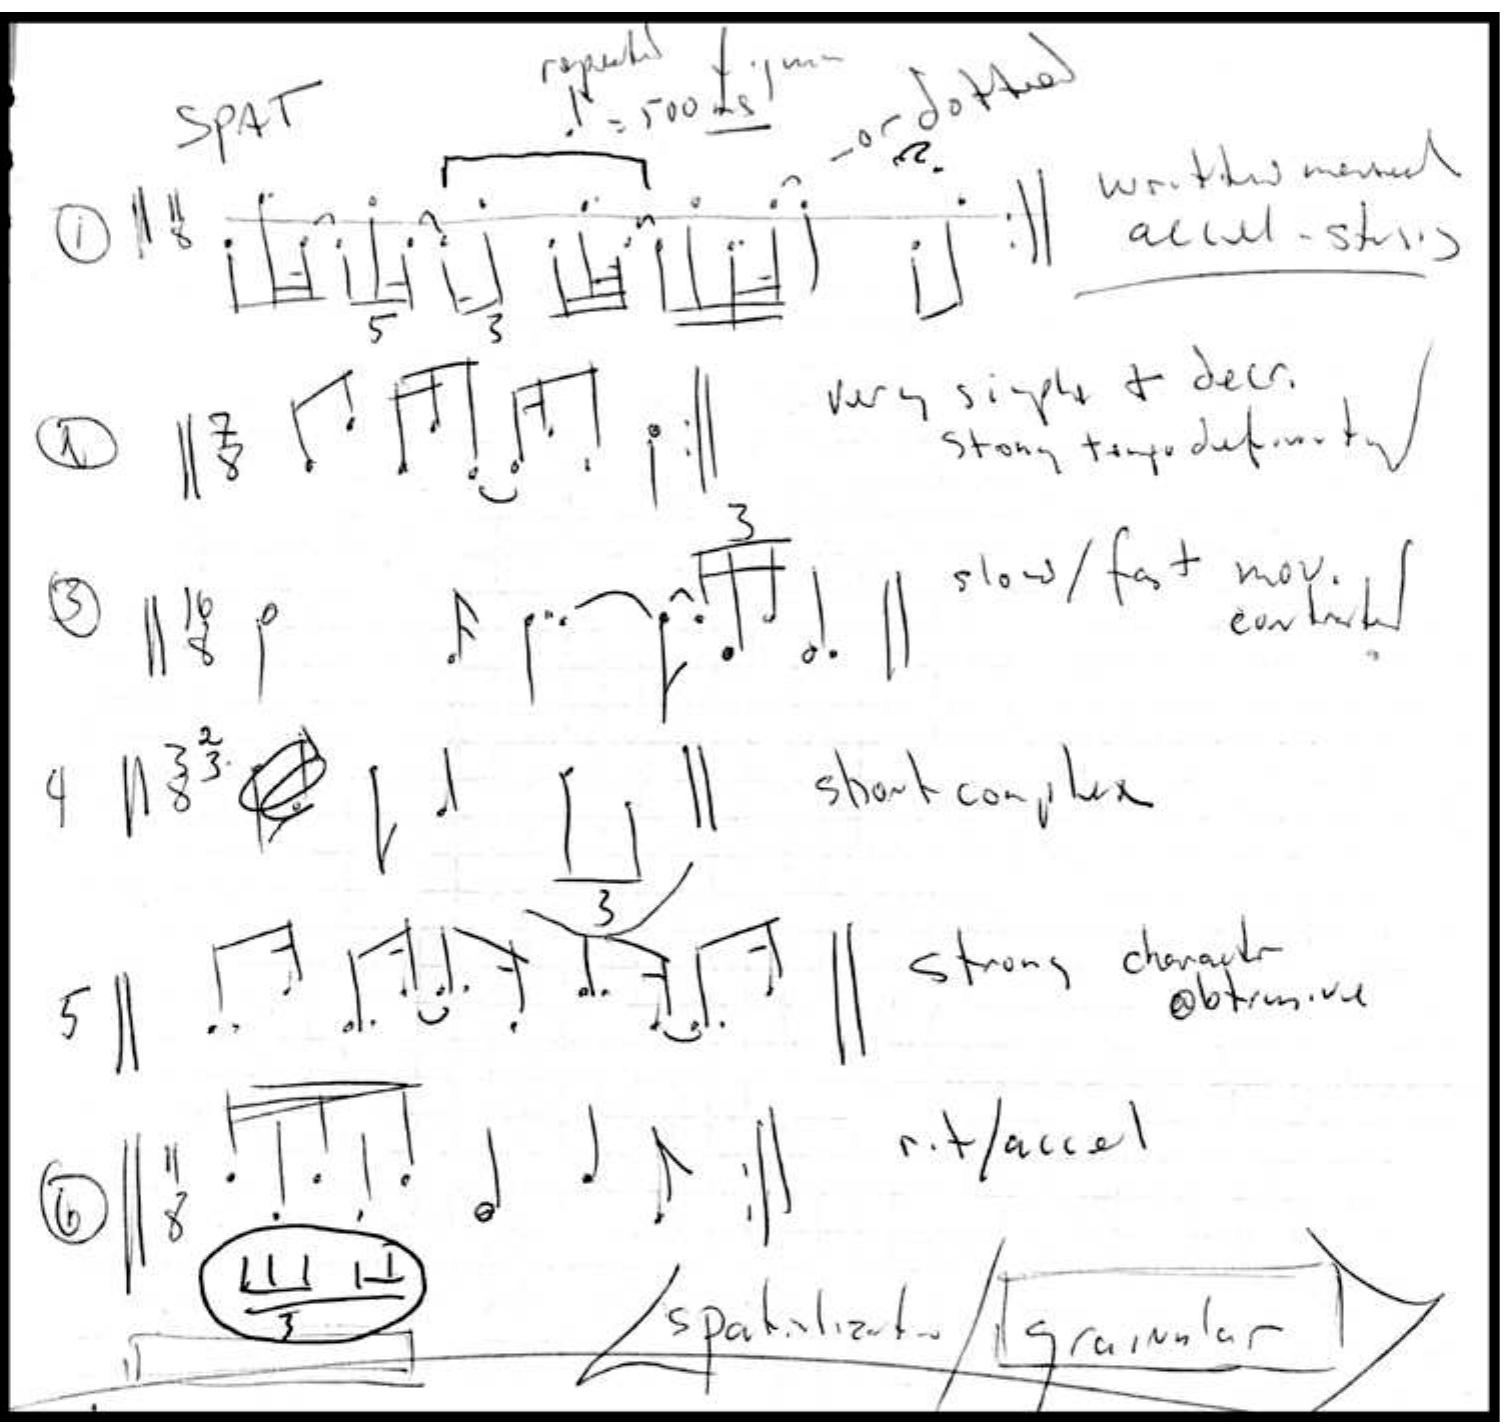 repeated figure
SPAT ♩ = 500 ms - or dotted
① 11/8 written
5 3 accel - stasis
very simple + decr.
7/8 strong tempo
3
③ 16/8 slow/fast mov.
4 3/8 2/3 short complex
3
5 strong character
obtrusive
⑥ 11/8 rit/accel
3
granular